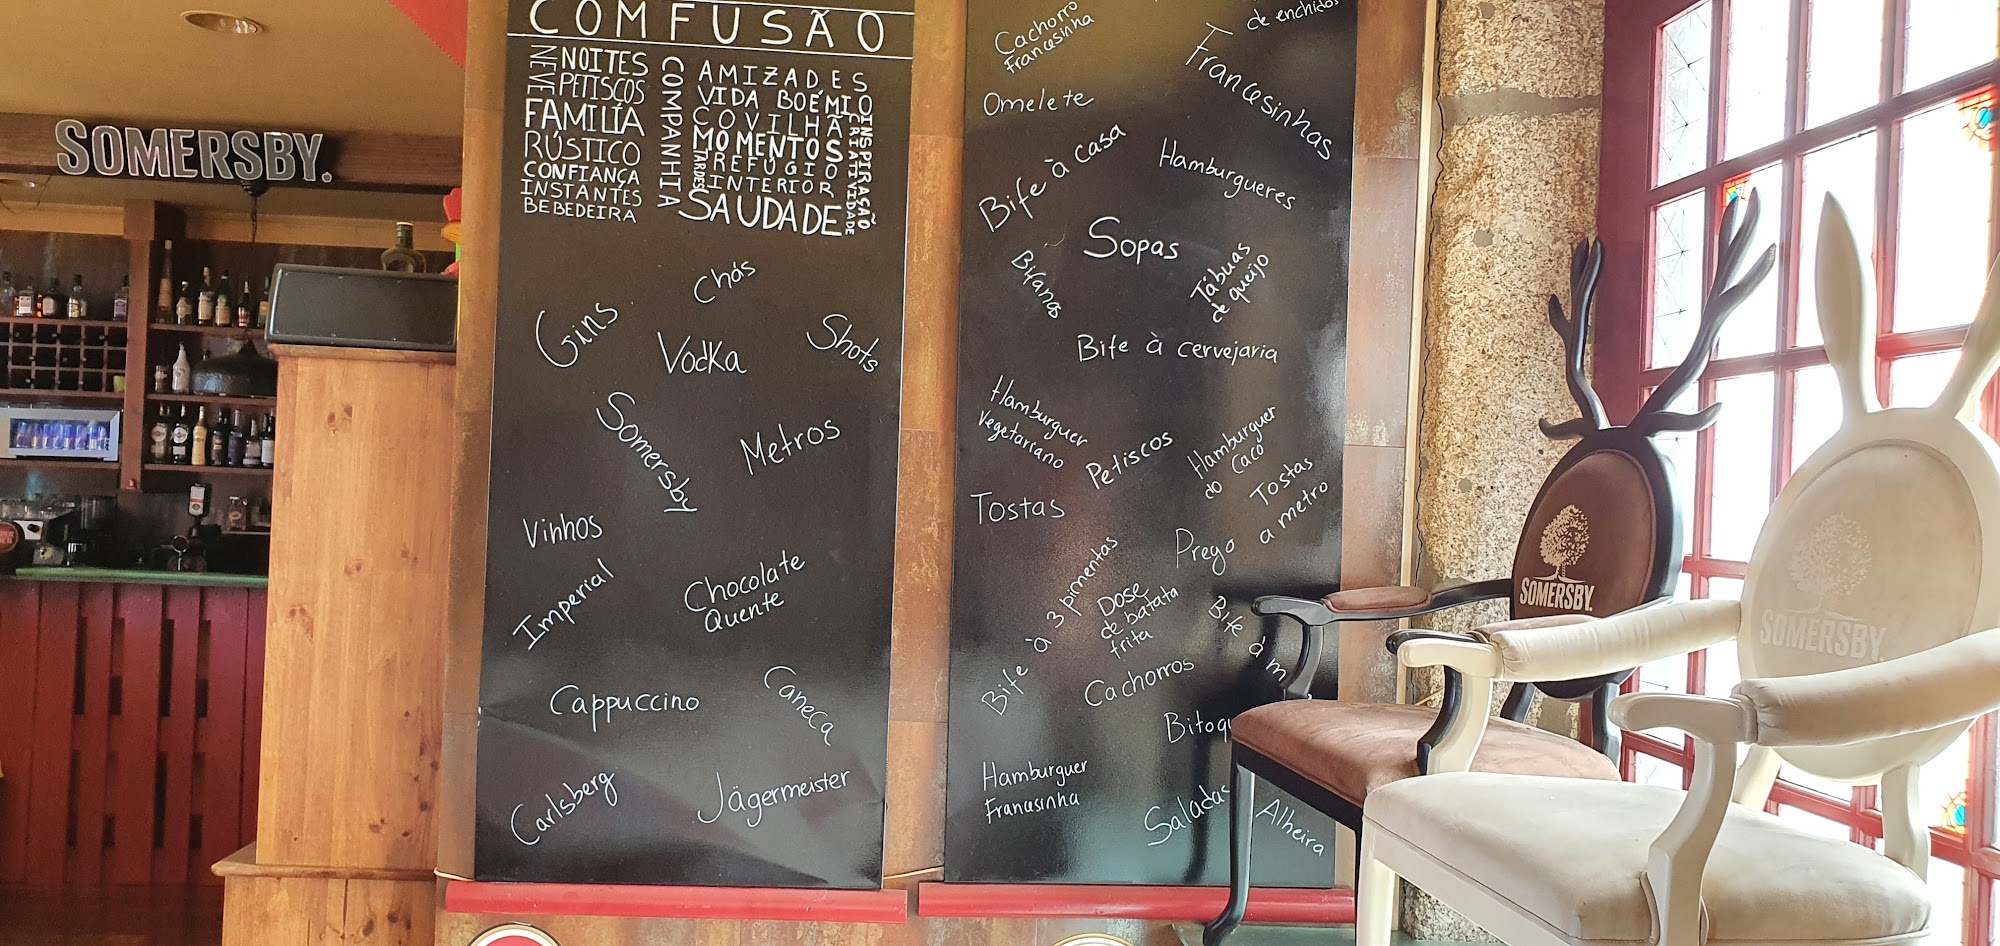 SOMERSBY.
COMFUSÃO
NEVE
NOITES
PETISCOS
FAMILÍA
RÚSTICO
CONFIANÇA
INSTANTÉS
BEBEDEIRA
COMPANHIA
AMIZADES
VIDA BOÉMIO
COVILHÃ
MOMENTOS
REFÚGIO
INTERIOR
TARDES
SAUDADE
CRIATIVIDADE
INSPIRAÇÃO
Chás
Gins
Vodka
Shots
Somersby
Metros
Vinhos
Imperial
Chocolate
Quente
Cappuccino
Caneca
Carlsberg
Jägermeister
Cachorro
Francesinha
de enchidos
Francesinhas
Omelete
Bife à casa
Hamburgueres
Sopas
Bifanas
Tábuas
de queijo
Bife à cervejaria
Hamburguer
Vegetariano
Petiscos
Hamburguer
do Caco
Tostas
Tostas
a metro
Prego
Bife à 3 pimentas
Dose
de batata
frita
Bife à m
Cachorros
Bitoqu
Hamburguer
Franasinha
Saladas
Alheira
SOMERSBY.
SOMERSBY.